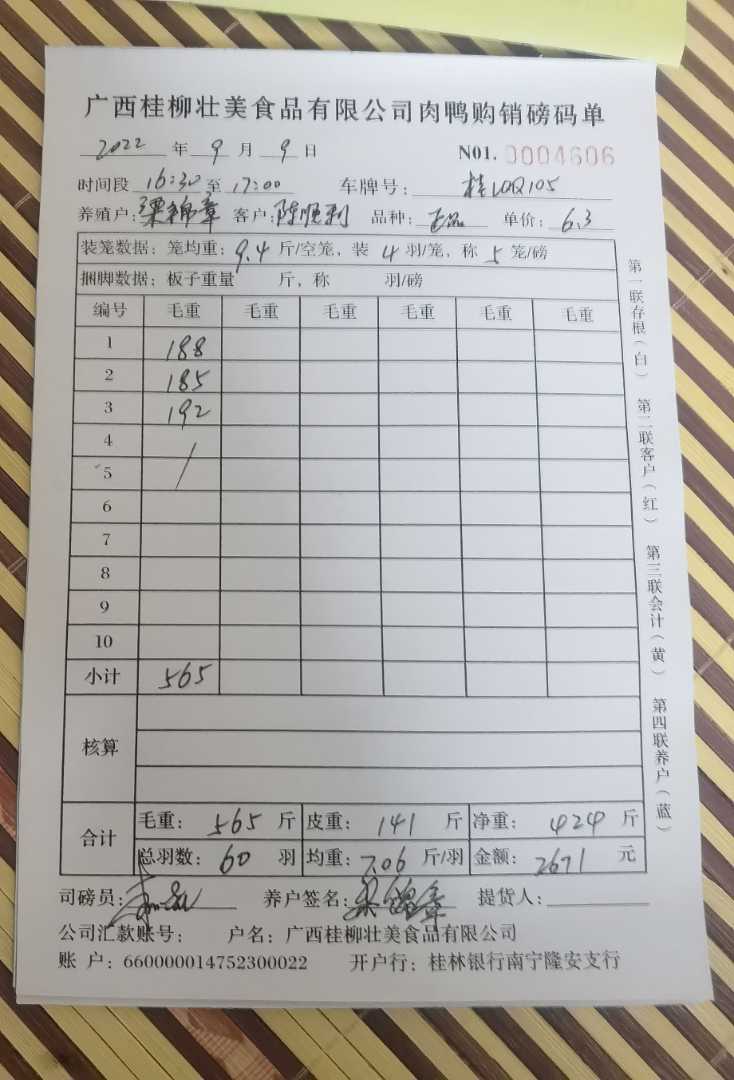 广西桂柳壮美食品有限公司肉鸭购销磅码单
2022 年 9 月 9 日 N01. 0004606
时间段 16:30 至 17:00 车牌号: 桂L0Q105
养殖户: 梁锦章 客户: 陈顺利 品种: 正品 单价: 6.3
装笼数据: 笼均重: 9.4 斤/空笼, 装 4 羽/笼, 称 5 笼/磅
捆脚数据: 板子重量 斤, 称 羽/磅
编号 毛重 毛重 毛重 毛重 毛重 毛重
1 188
2 185
3 192
4
5
6
7
8
9
10
小计 565
核算
合计
毛重: 565 斤 皮重: 141 斤 净重: 424 斤
总羽数: 60 羽 均重: 7.06 斤/羽 金额: 2671 元
司磅员: 养户签名: 梁锦章 提货人:
公司汇款账号: 户名: 广西桂柳壮美食品有限公司
账 户: 660000014752300022 开户行: 桂林银行南宁隆安支行
第一联存根(白) 第二联客户(红) 第三联会计(黄) 第四联养户(蓝)